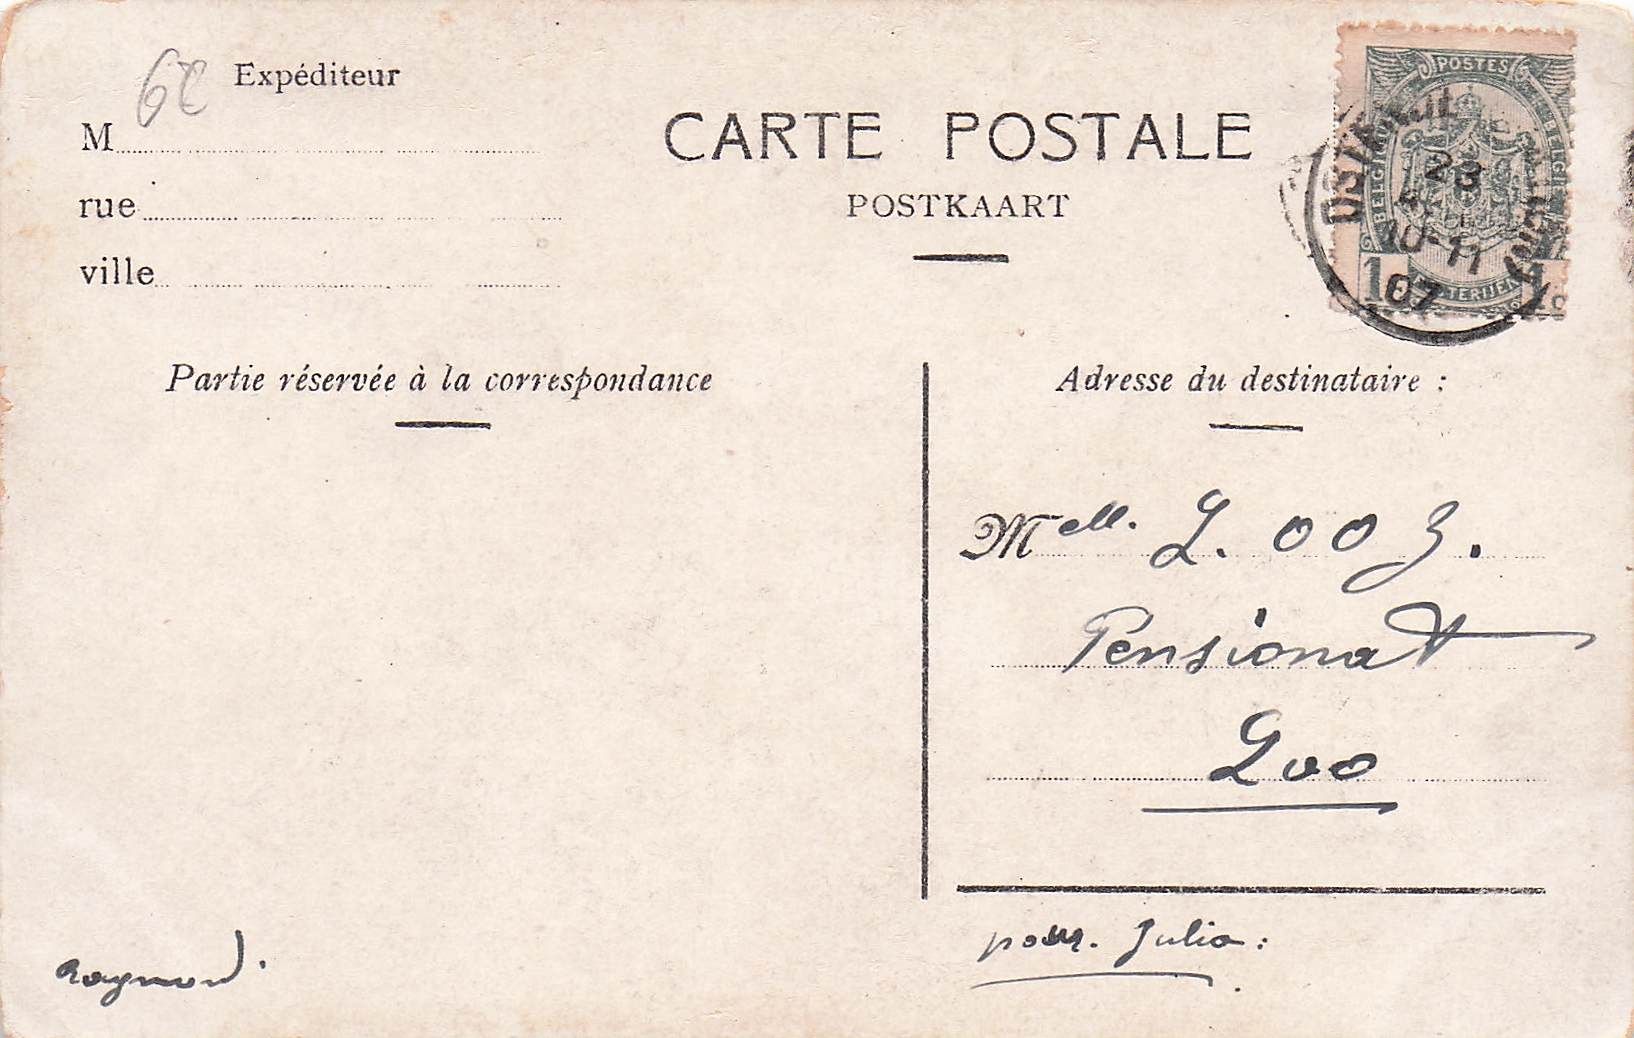 6€ Expéditeur
M
rue
ville
CARTE POSTALE
POSTKAART
POSTES
BELGIQUE BELGIË
1 1
10-11
07
Partie réservée à la correspondance
Adresse du destinataire :
Melle. L. ooz.
Pensionat
Loo
pour. Julia:
Raymond.